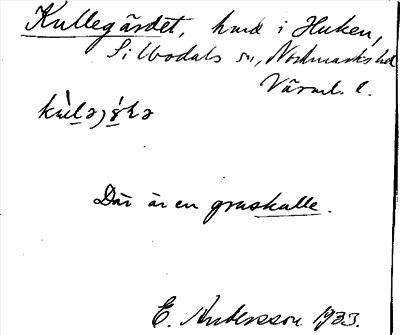 Kullegärdet, hmd i Huken,
Silbodals sn, Nordmarks hd
Värml. l.
Där är en gruskulle.
E. Andersson 1933.